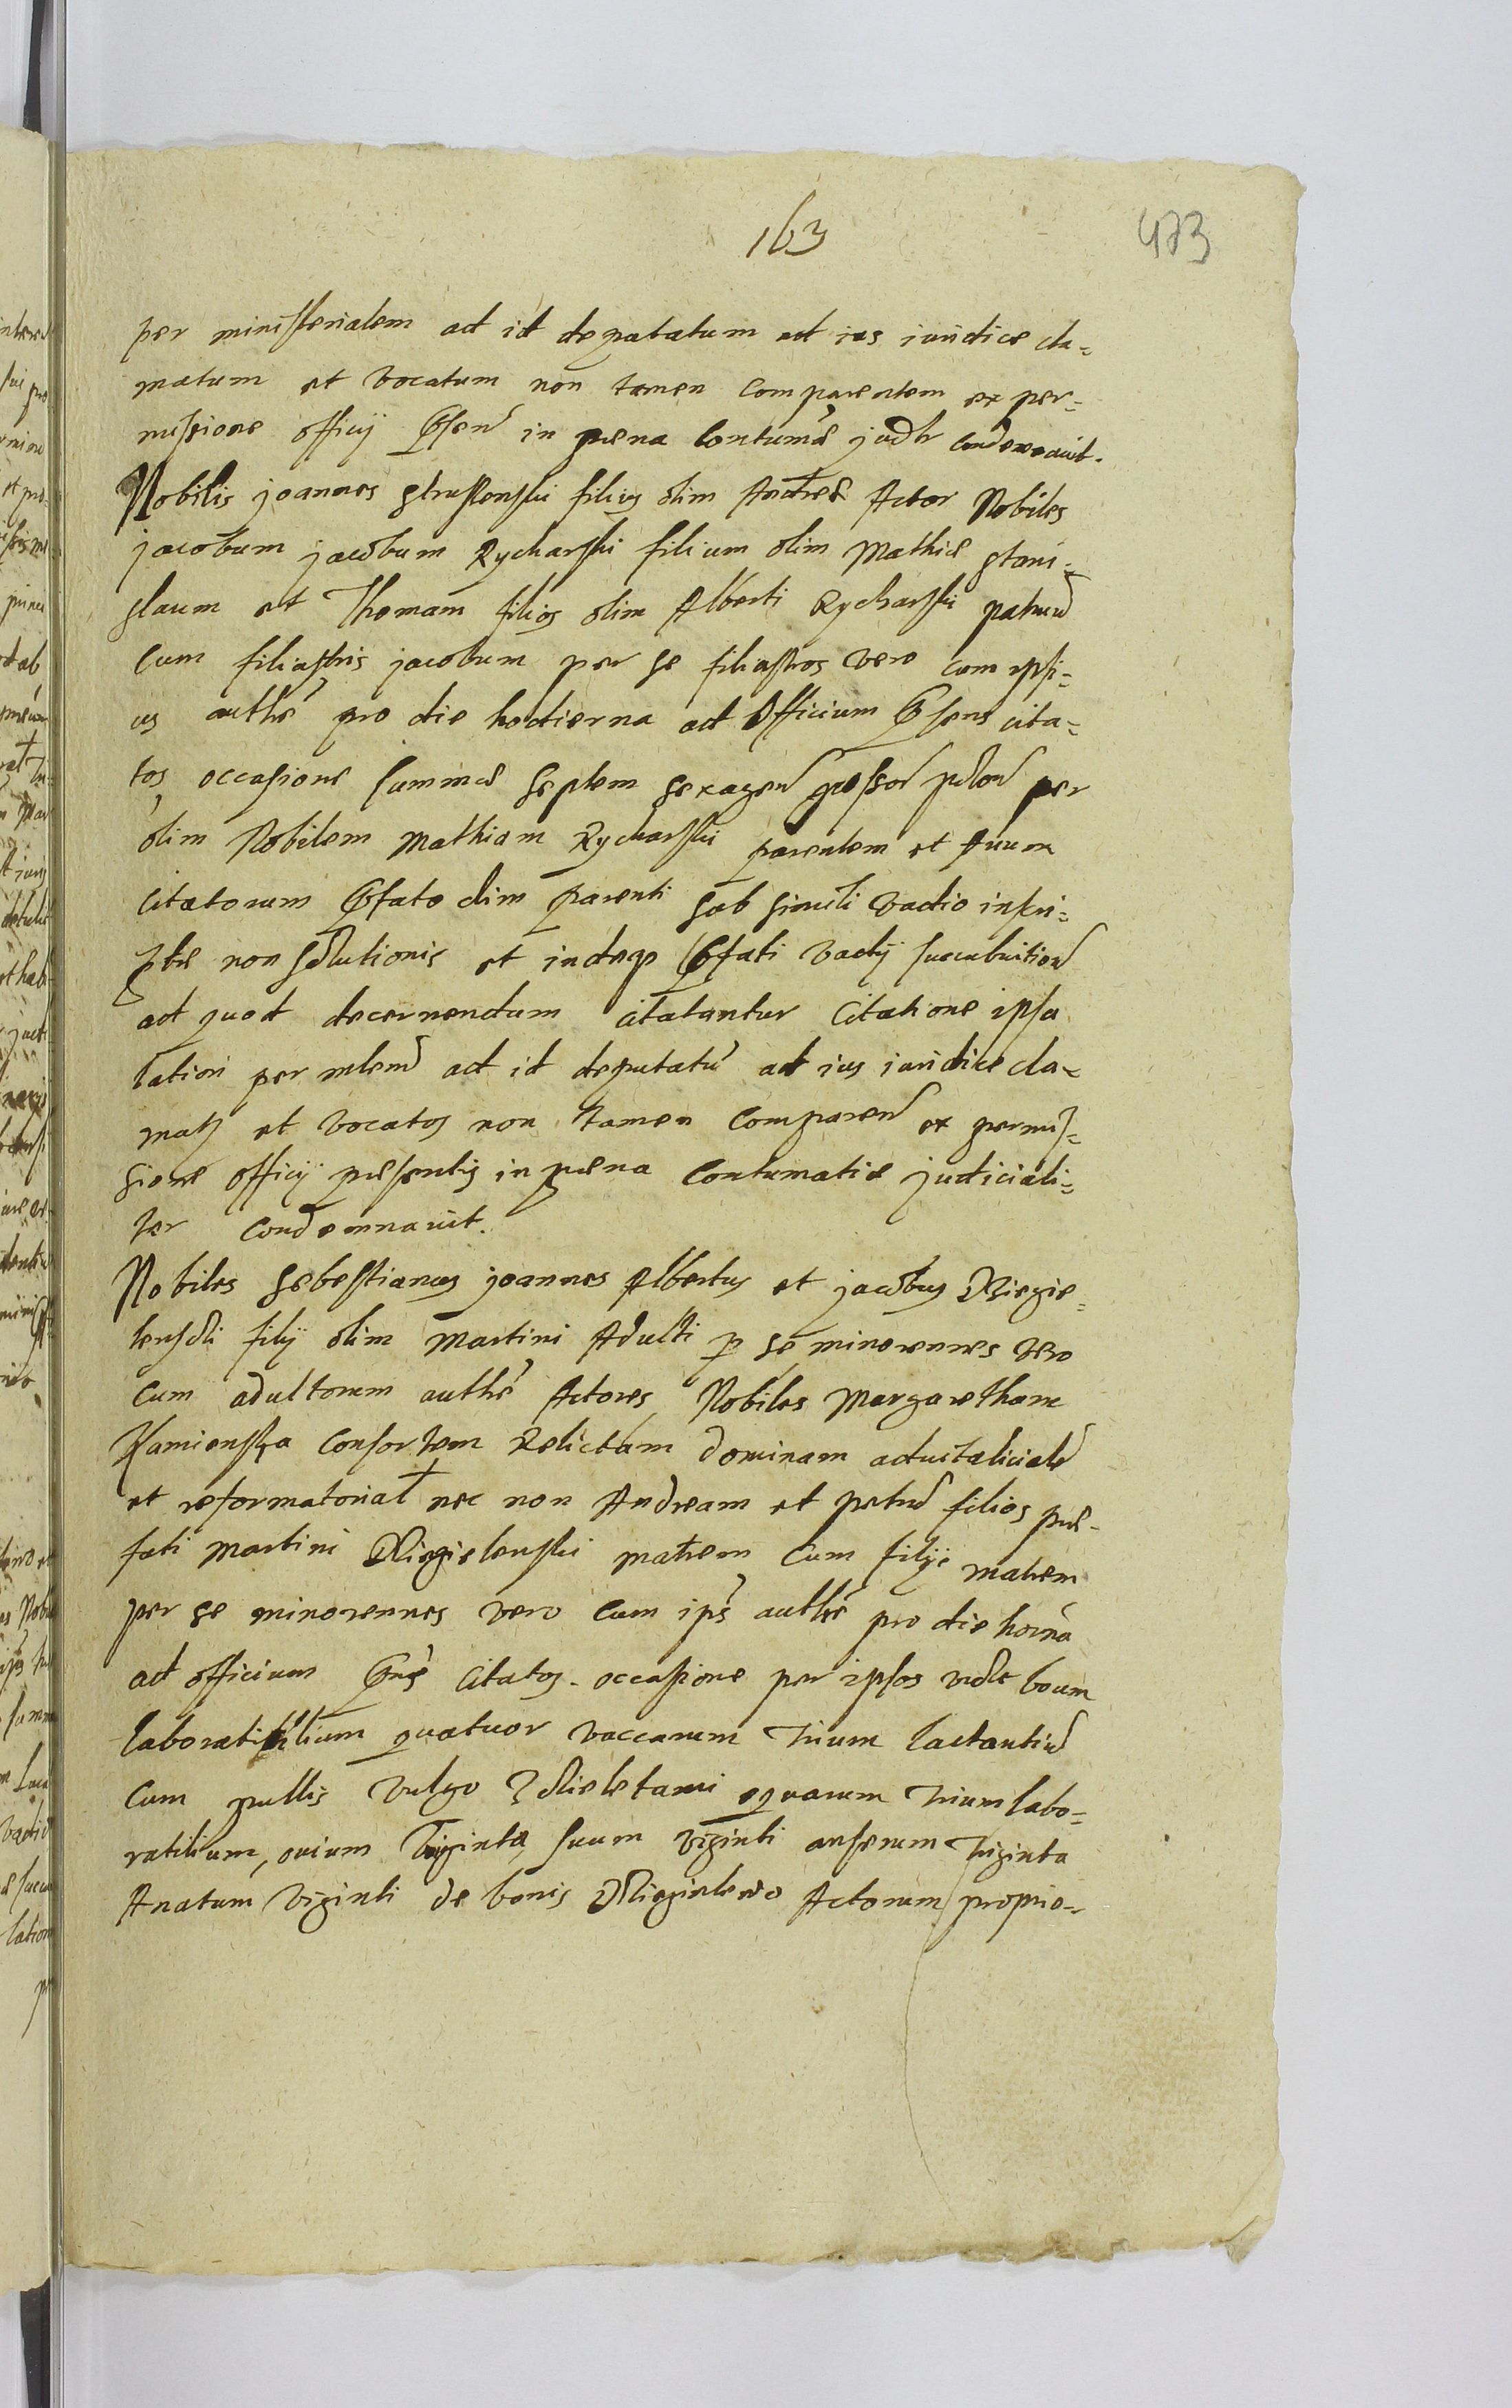 163
473
per ministerialem ad id deputatum ad ius iuridice cla-
matum et vocatum non tamen comparentem ex per-
missione officij Psen in pæna Contumæ judlr condemnauit.
Nobilis joannes filius olim Andreæ Actor Nobiles
jacobum jacobum Rycharski filium olim Mathiæ Stani-
slaum et Thomam filios olim Alberti Rycharski patruu
Cum filiastris jacobum per se filiastros vero cum ipsi-
us authe pro die hodierna ad Officium Psens cita-
tos occasione summæ Septem sexagen grossor per
olim Nobilem Mathiam Rycharski parentem et Auum
Citatorum Pfato olim Parenti sub simili vadio inscri-
ptæ non solutionis et indeqe Pfati vadij succubuition
ad quod decernendum citatantur Citatione ipsa
lation per mlem ad id deputatu ad ius iuridice cla-
matos et vocatos non tamen Comparen ex permis-
sione officij præsentis in pæna Contumatiæ judiciali-
ter Condemnauit.
Nobiles Sebestianus joannes Albertus et jacobus Dziegie-
lenski filij olim Martini Adulti p se minorennes vero
Cum adultorum authe Actores Nobiles Margaretham
Kamienska Consortem Relictam dominam aduitalicialem
et reformatorial nec non Andream et petrum filios præ-
fati Martini Dziegielenski matrem Cum filijs matrem
per se minorennes vero Cum ips authe pro die horna
ad officium Pns Citatos. occasione per ipsos vidlt boum
laboratilium quatuor vaccarum trium lactantiu
Cum pullis vulgo equarum trium labo-
ratilium, ouium Triginta suum viginti anserum triginta
Anatum viginti de bonis Dziegielewo Actorum proprio-